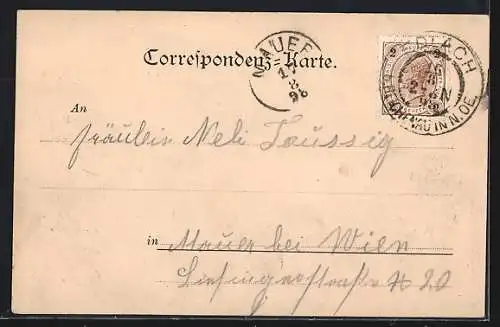 Correspondenz-Karte.
MAUER
17
8
98
An
Fräulein Neli Taussig
in
Mauer bei Wien
Liesingerstraße № 20